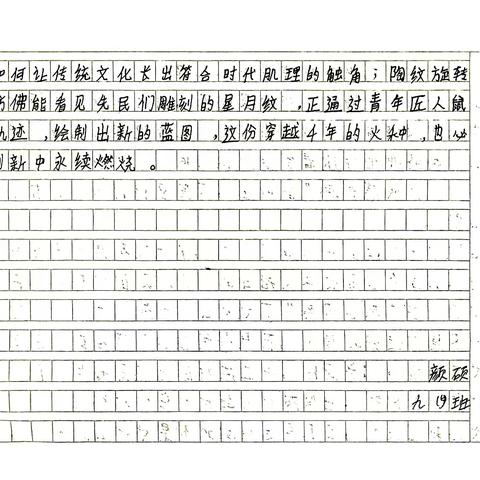 如何让传统文化长出符合时代肌理的触角；陶纹旋转
佛能看见先民们雕刻的星月纹，正通过青年匠人鼠
迹，绘制出新的蓝图，这份穿越4年的火种，也必
新中永续燃烧。
颜硕
九(9)班